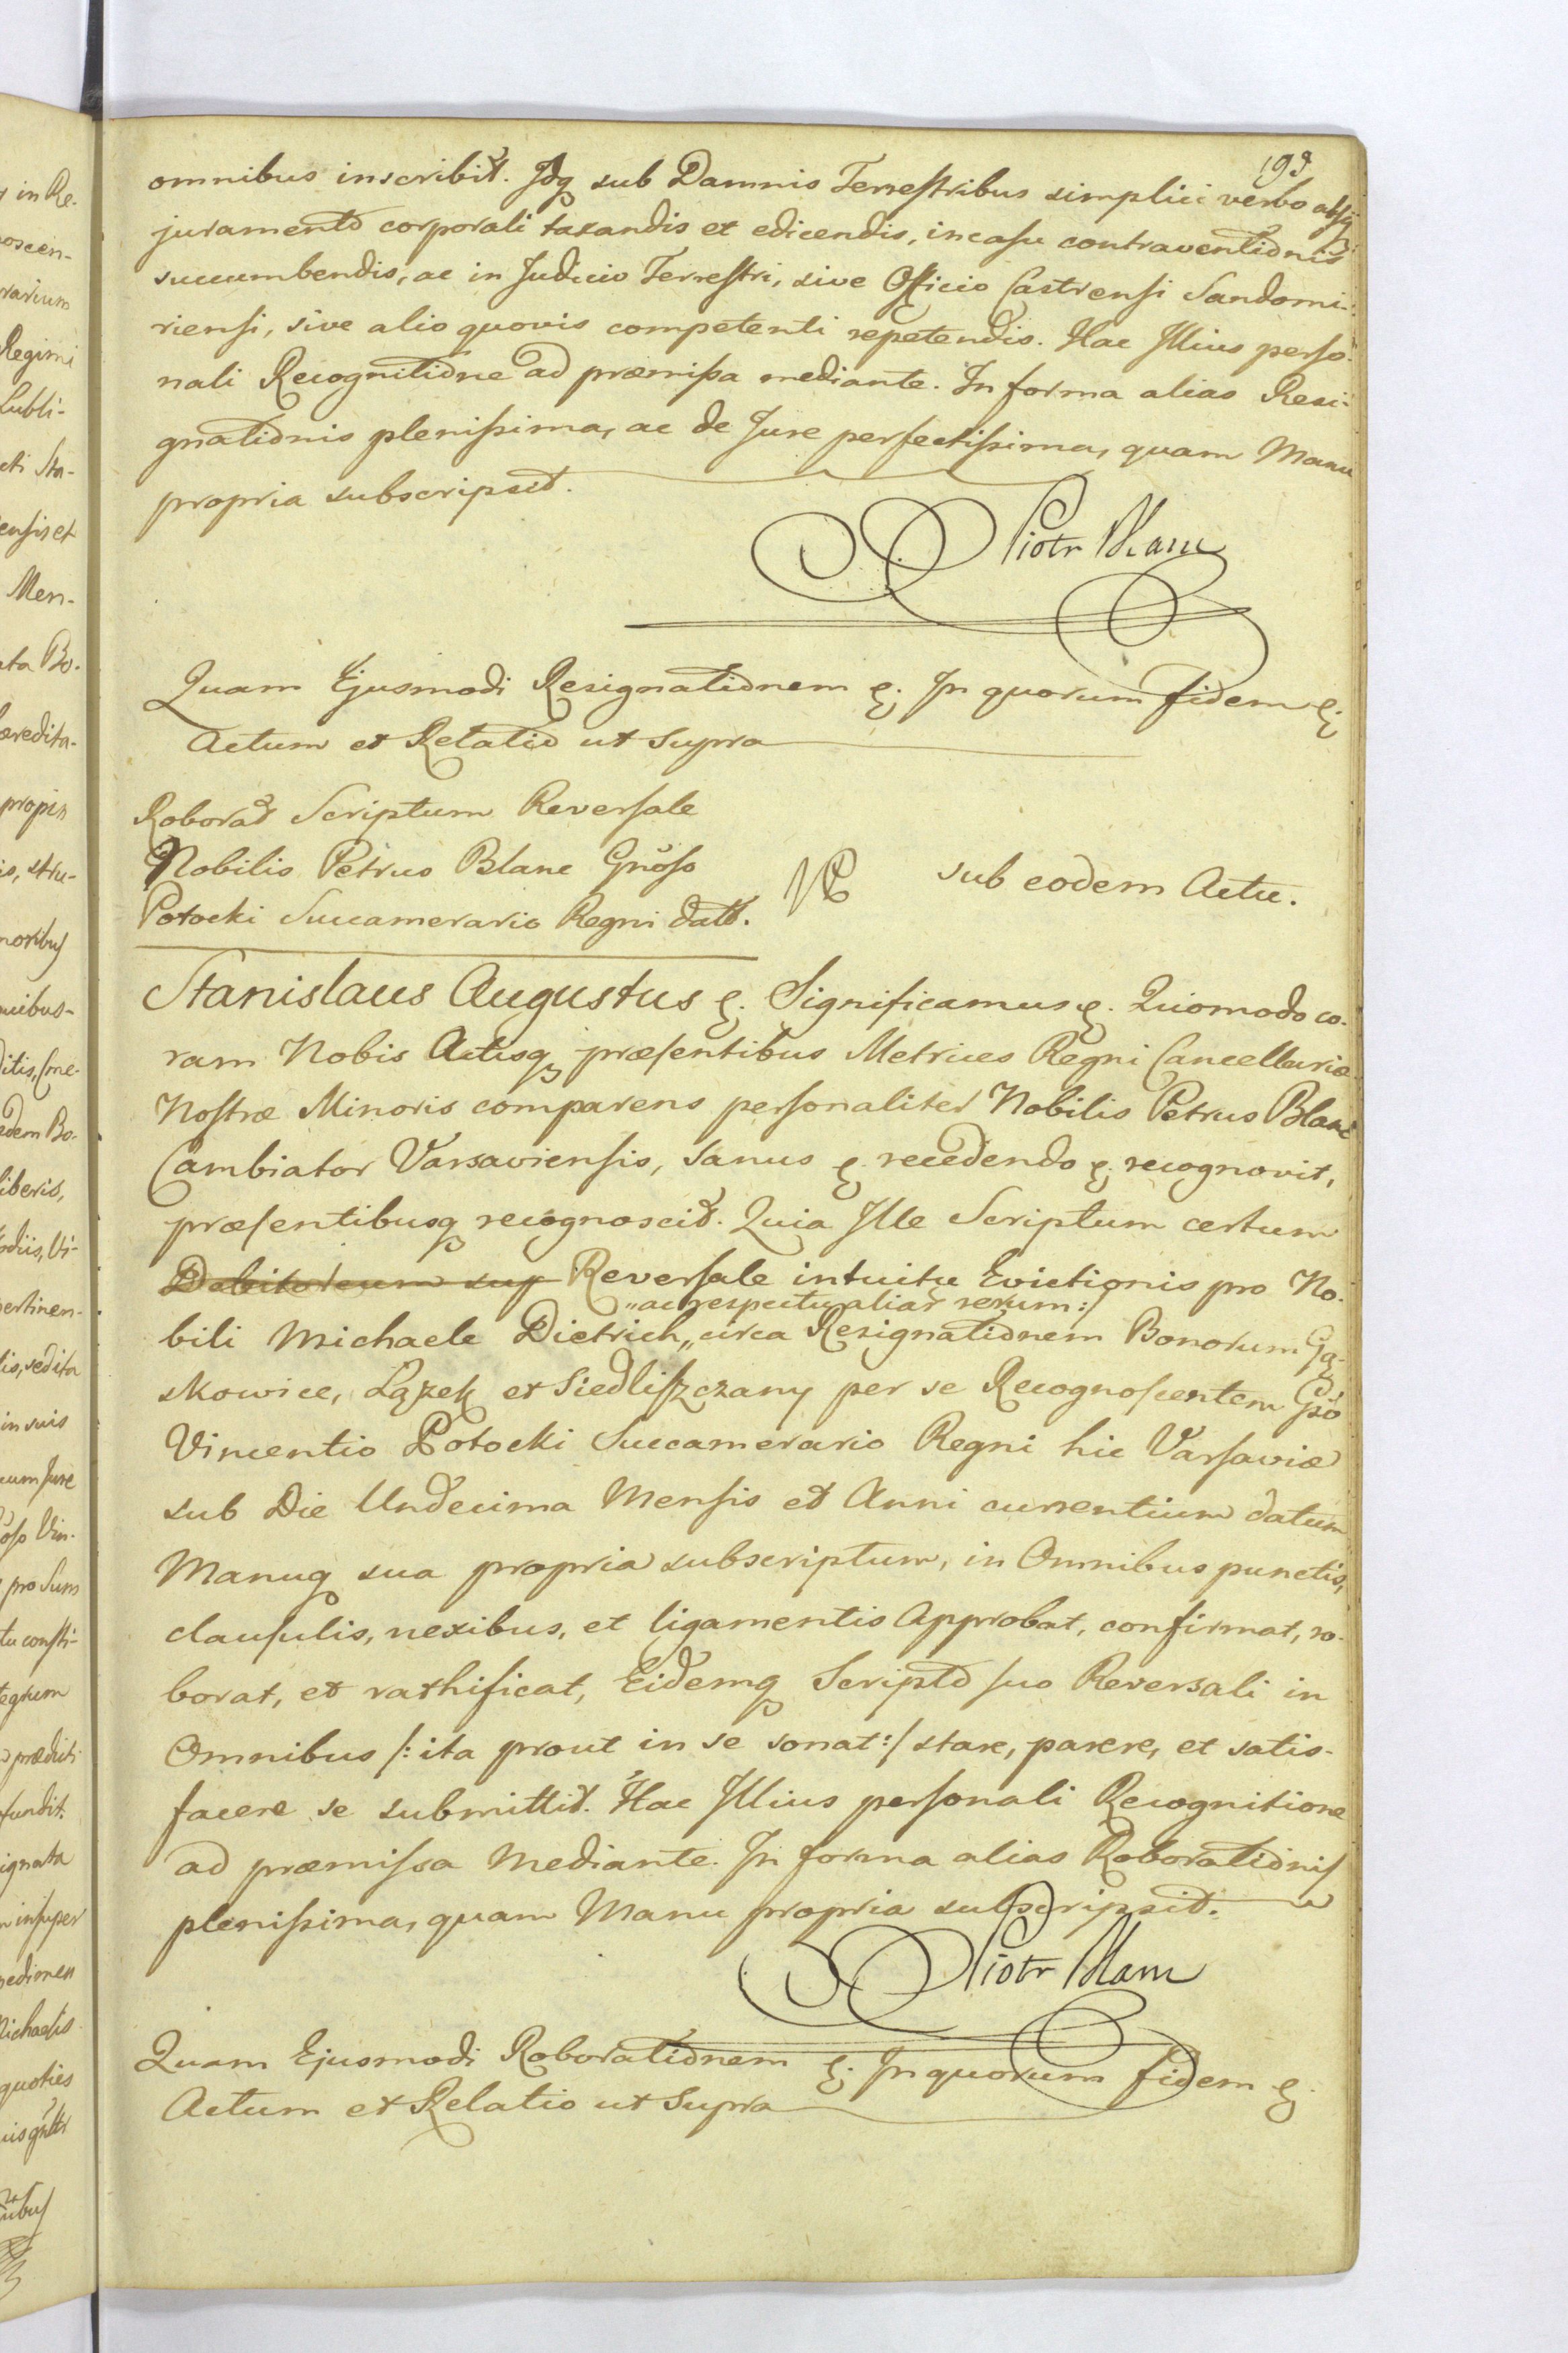 193
omnibus inscribit. Idq sub Damnis Terrestribus simplici verbo absq
juramento corporali taxandis et edicendis, in casu contraventionis
succumbendis, ac in Judicio Terrestri, sive Officio Castrensi Sandomi-
riensi, sive alio quovis competenti repetendis. Hac Illius perso-
nali Recognitione ad præmissa mediante. In forma alias Resi-
gnationis plenissima, ac de Jure perfectissima, quam Manu
propria subscripsit.
Piotr Blanc
Quam Ejusmodi Resignationem &. In quorum fidem &.
Actum et Relatio ut Supra
Roborat Scriptum Reversale
Nobilis Petrus Blanc Gnoso
Potocki Succamerario Regni datt.
sub eodem Actu.
Stanislaus Augustus &. Significamus &. Quomodo co-
ram Nobis Actisq præsentibus Metrices Regni Cancellariæ
Nostræ Minoris comparens personaliter Nobilis Petrus Blanc
Cambiator Varsaviensis, Sanus & recedendo & recognovit,
præsentibusq recognoscit. Quia Ille Scriptum certum
Reversale intuitu Evictionis pro No-
„ac respectu aliar rerum:/
bili Michaele Dietrich„ circa Resignationem Bonorum Gą-
skowice, Lązek et Siedliszczany per se Recognoscentem Gso
Vincentio Potocki Succamerario Regni hic Varsaviæ
sub Die Undecima Mensis et Anni currentium datum
Manuq sua propria subscriptum, in Omnibus punctis,
clausulis, nexibus, et ligamentis Approbat, confirmat, ro-
borat, et rathificat, Eidemq Scripto suo Reversali in
Omnibus /: ita prout in se sonat :/ stare, parere, et satis-
facere se submittit. Hac Illius personali Recognitione
ad præmissa Mediante. In forma alias Roborationis
plenissima, quam Manu propria subscripsit.
Piotr Blanc
Quam Ejusmodi Roborationem &. In quorum fidem &.
Actum et Relatio ut Supra